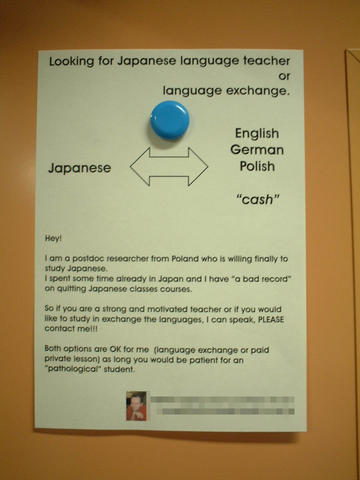 Looking for Japanese language teacher
or
language exchange.
English
German
Japanese
Polish
"cash"
Hey!
I am a postdoc researcher from Poland who is willing finally to
study Japanese.
I spent some time already in Japan and I have "a bad record"
on quitting Japanese classes courses.
So if you are a strong and motivated teacher or if you would
like to study in exchange the languages, I can speak, PLEASE
contact me!!!
Both options are OK for me (language exchange or paid
private lesson) as long you would be patient for an
"pathological" student.